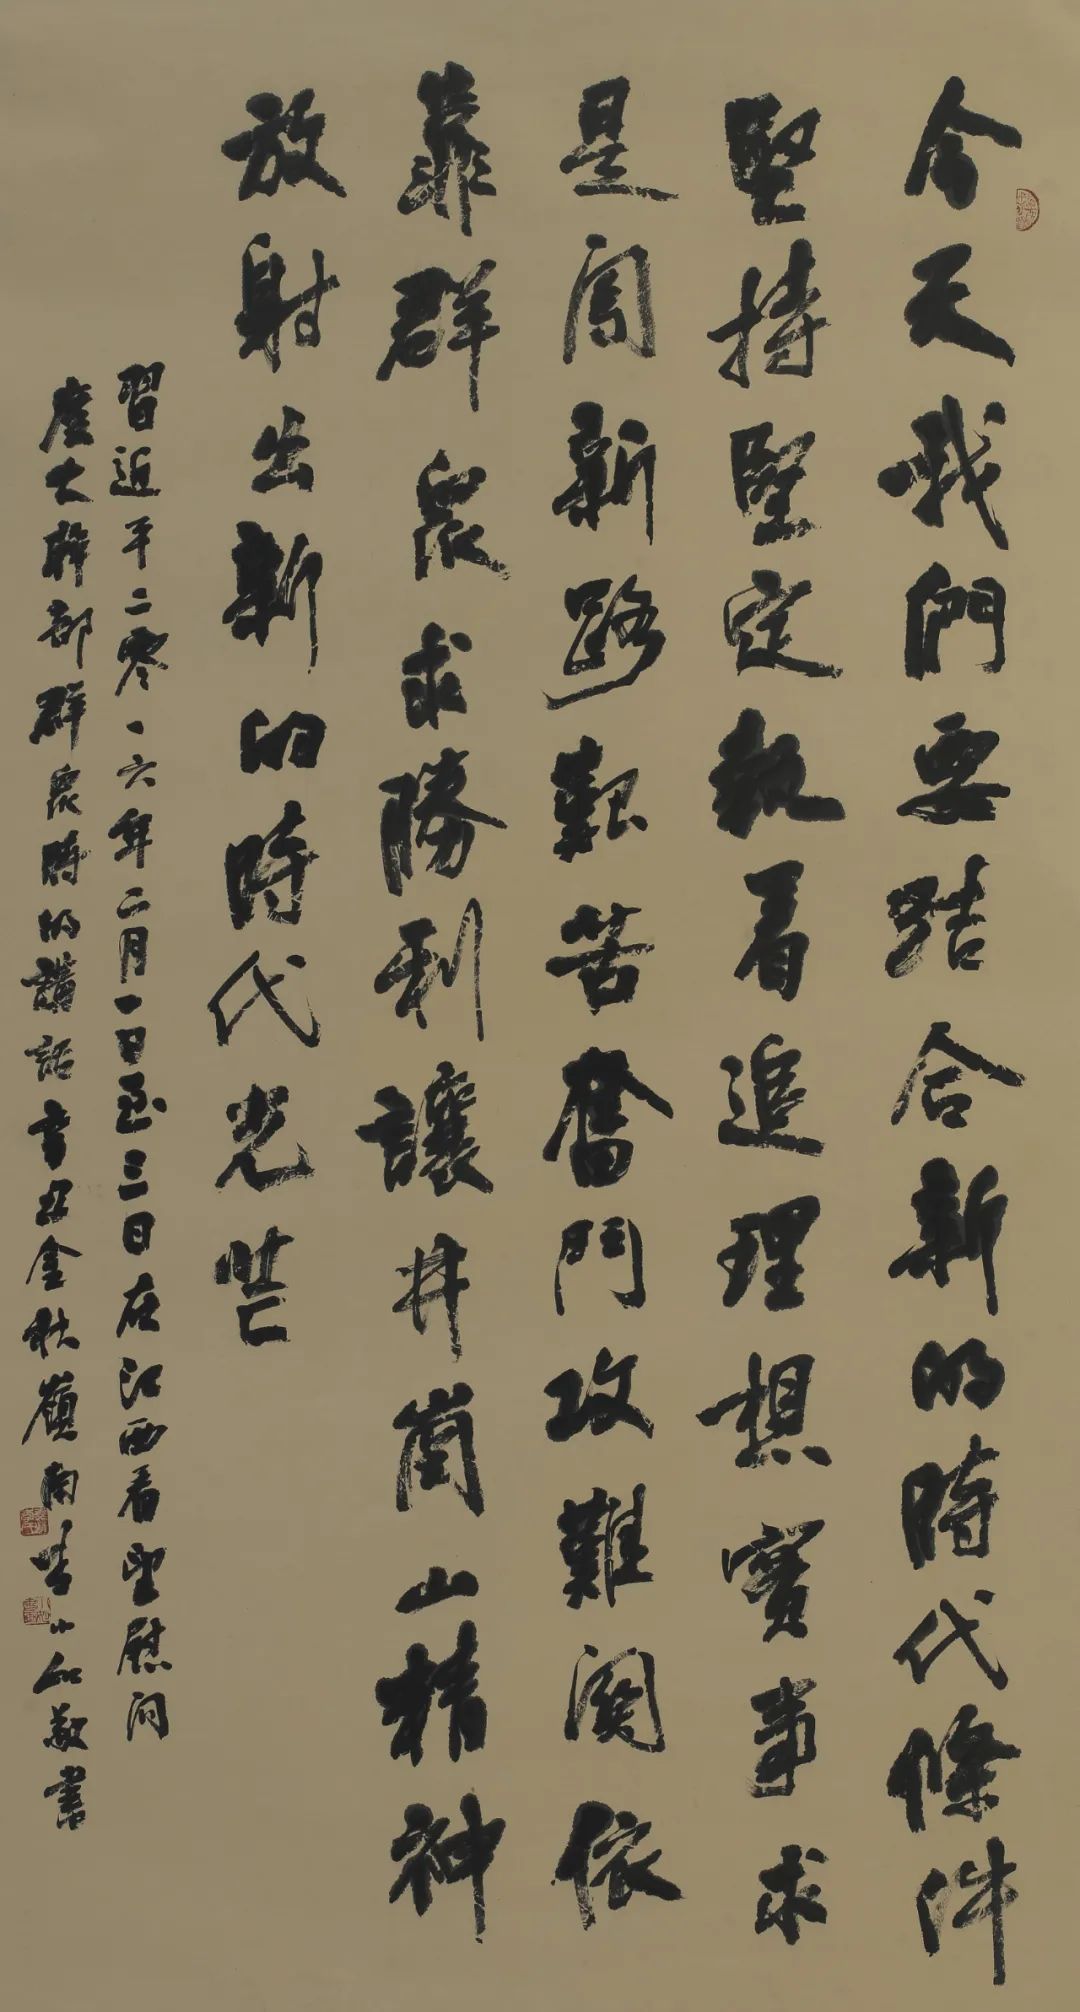 今天我們要結合新的時代條件
堅持堅定執着追理想實事求
是闖新路艱苦奮鬥攻難關依
靠群衆求勝利讓井崗山精神
放射出新的時代光芒
習近平二零一六年二月一日至三日在江西看望慰問
廣大幹部群衆時的講話 辛丑金秋嶺南李小如敬書